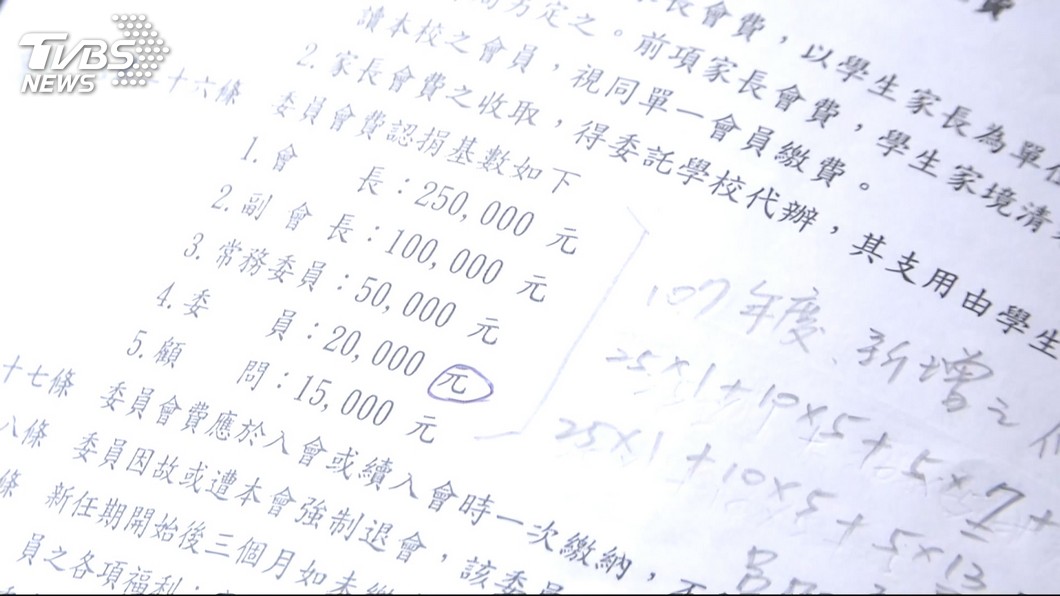 TVBS
NEWS
費
長會費，以學生家長為單位
定之。前項家長會費，學生家境清
讀本校之會員，視同單一會員繳費。
2.家長會費之收取，得委託學校代辦，其支用由學生
十六條 委員會費認捐基數如下
1.會 長：250,000 元
2.副 會 長：100,000 元
3.常務委員：50,000 元
4.委 員：20,000 元
5.顧 問：15,000 元
十七條 委員會費應於入會或續入會時一次繳納，不
八條 委員因故或遭本會強制退會，該委員
條 新任期開始後三個月如未繳
員之各項福利；
107年度、新增之
25×1+10×5+5×7+
25×1+10×5+5×13